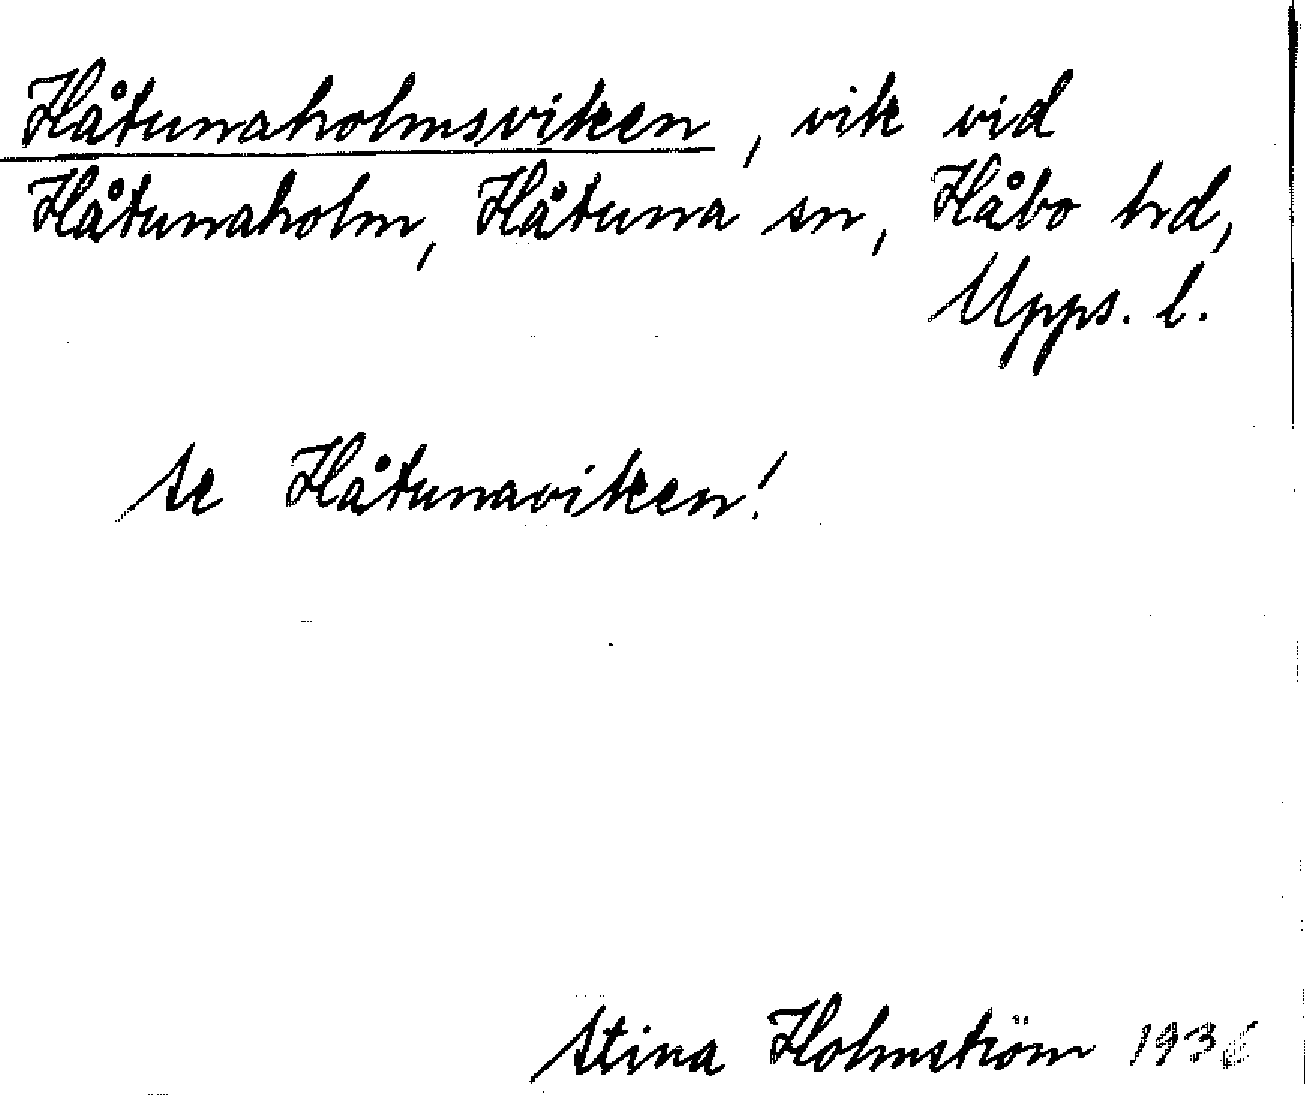 Håtunaholmsviken, vik vid
Håtunaholm, Håtuna sn, Håbo hd,
Upps. l.
Se Håtunaviken!
Stina Holmström 1936